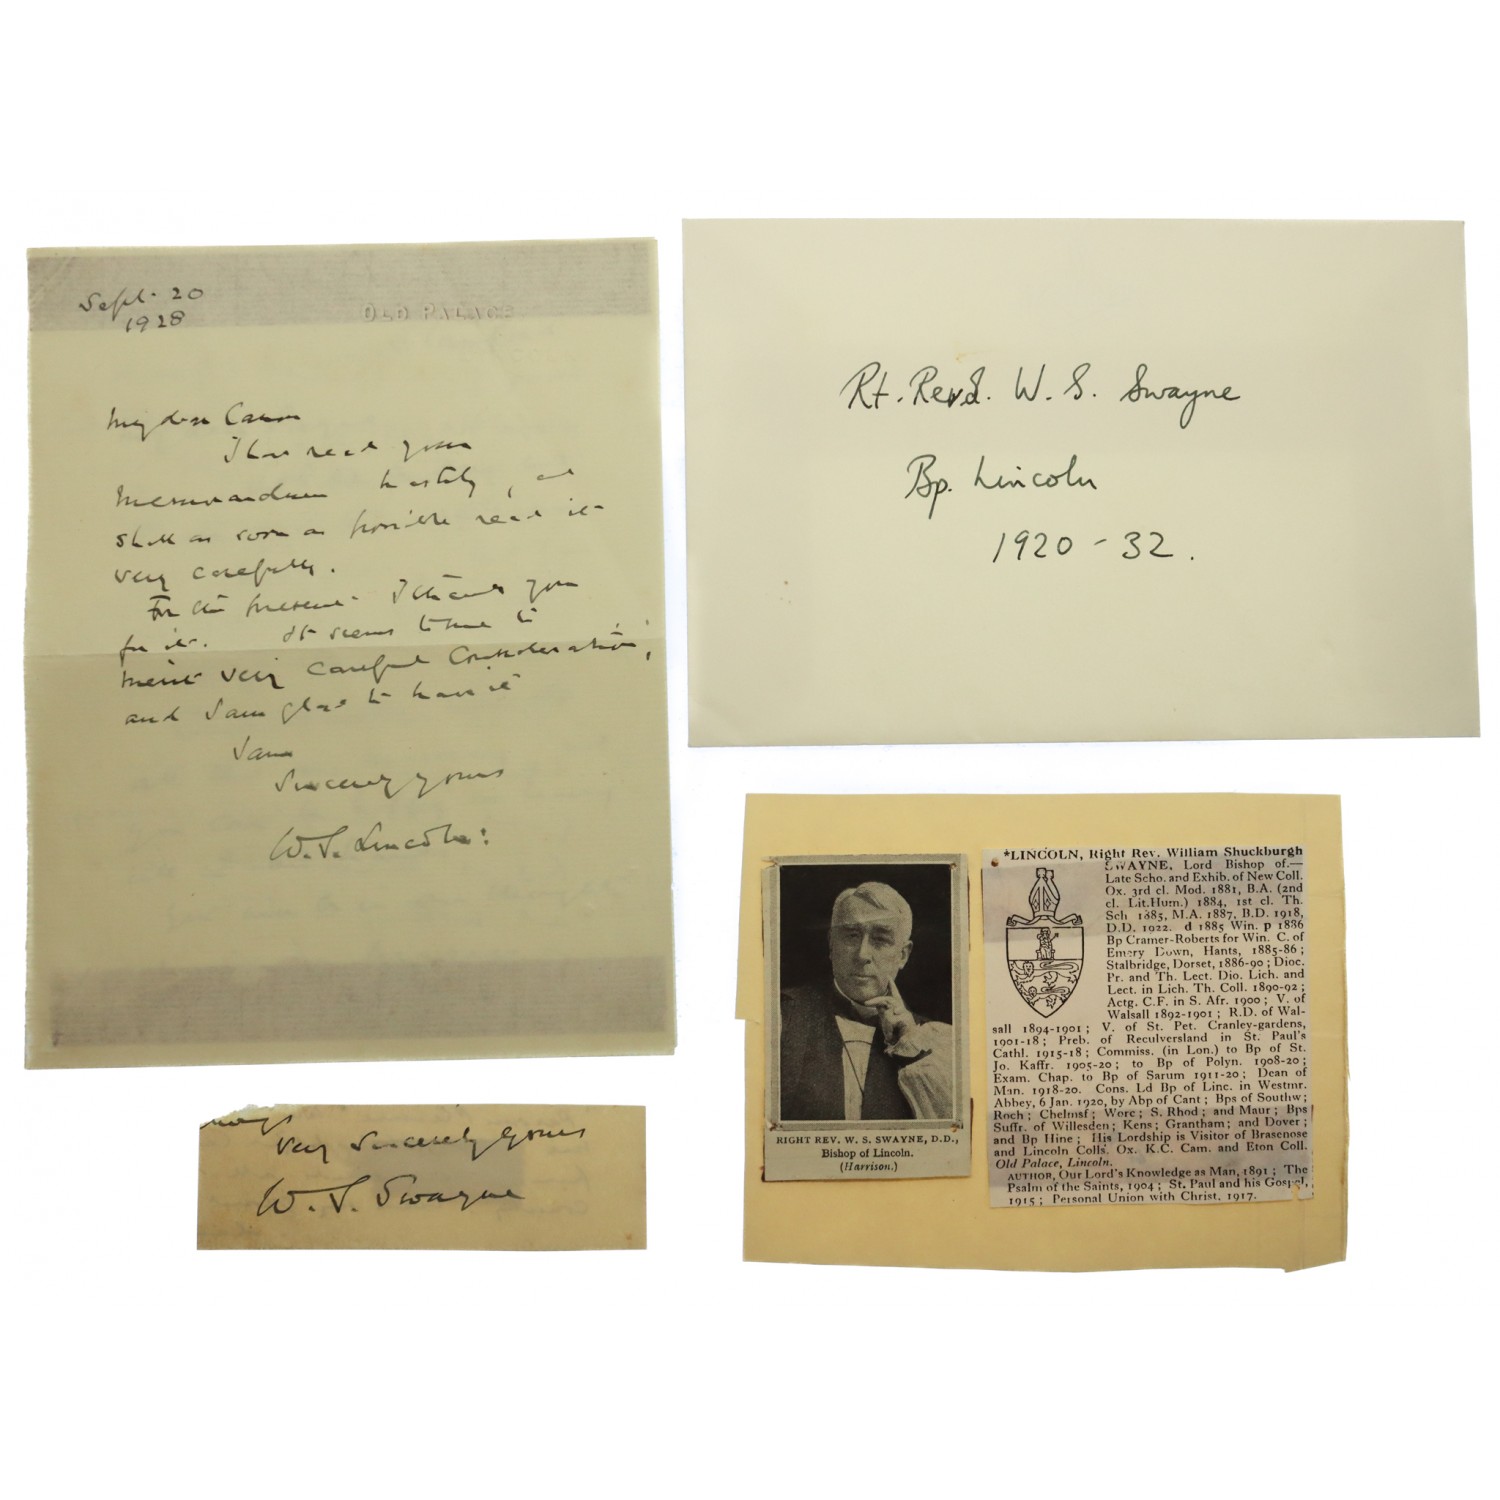 Sept. 20
1928
OLD PALACE
My dear Canon
I have read your
memorandum hastily, and
shall as soon as possible read it
very carefully.
For the present I thank you
for it. It seems to me to
merit very careful consideration,
and I am glad to have it
I am
Sincerely yours
W. S. Lincoln:
Rt. Revd. W. S. Swayne
Bp. Lincoln
1920 - 32.
very sincerely yours
W. S. Swayne
RIGHT REV. W. S. SWAYNE, D.D.,
Bishop of Lincoln.
(Harrison.)
*LINCOLN, Right Rev. William Shuckburgh
SWAYNE, Lord Bishop of.—
Late Scho. and Exhib. of New Coll.
Ox. 3rd cl. Mod. 1881, B.A. (2nd
cl. Lit.Hum.) 1884, 1st cl. Th.
Sch 1885, M.A. 1887, B.D. 1918,
D.D. 1922. d 1885 Win. p 1886
Bp Cramer-Roberts for Win. C. of
Emery Down, Hants, 1885-86;
Stalbridge, Dorset, 1886-90; Dioc.
Pr. and Th. Lect. Dio. Lich. and
Lect. in Lich. Th. Coll. 1890-92;
Actg. C.F. in S. Afr. 1900; V. of
Walsall 1892-1901; R.D. of Wal-
sall 1894-1901; V. of St. Pet. Cranley-gardens,
1901-18; Preb. of Reculversland in St. Paul's
Cathl. 1915-18; Commiss. (in Lon.) to Bp of St.
Jo. Kaffr. 1905-20; to Bp of Polyn. 1908-20;
Exam. Chap. to Bp of Sarum 1911-20; Dean of
Man. 1918-20. Cons. Ld Bp of Linc. in Westmr.
Abbey, 6 Jan. 1920, by Abp of Cant; Bps of Southw;
Roch; Chelmsf; Worc; S. Rhod; and Maur; Bps
Suffr. of Willesden; Kens; Grantham; and Dover;
and Bp Hine; His Lordship is Visitor of Brasenose
and Lincoln Colls. Ox. K.C. Cam. and Eton Coll.
Old Palace, Lincoln.
AUTHOR, Our Lord's Knowledge as Man, 1891; The
Psalm of the Saints, 1904; St. Paul and his Gospel,
1915; Personal Union with Christ, 1917.